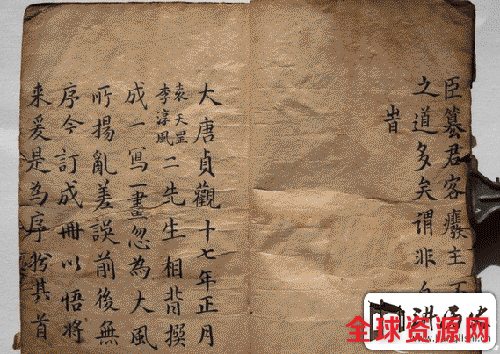 臣簒君客癈主
之道多矣謂非
旹
大唐貞觀十七年正月
袁天罡
李淳風
二先生相背撰
成一寫一畫忽為大風
所揚亂差誤前後無
序今訂成冊以悟將
来爰是為序扵其首
全球资源网